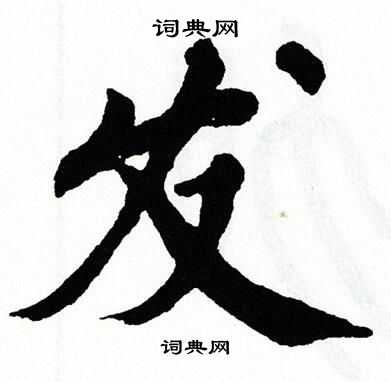 词典网
发
词典网